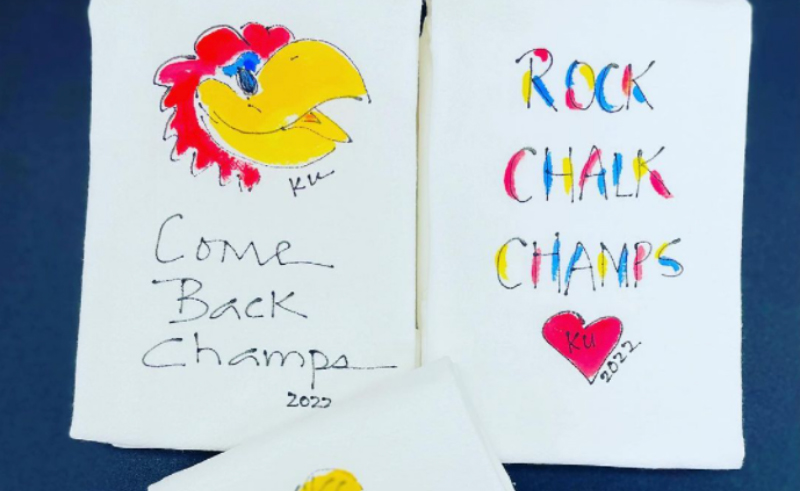 KU
Come
Back
Champs
2022
ROCK
CHALK
CHAMPS
KU
2022